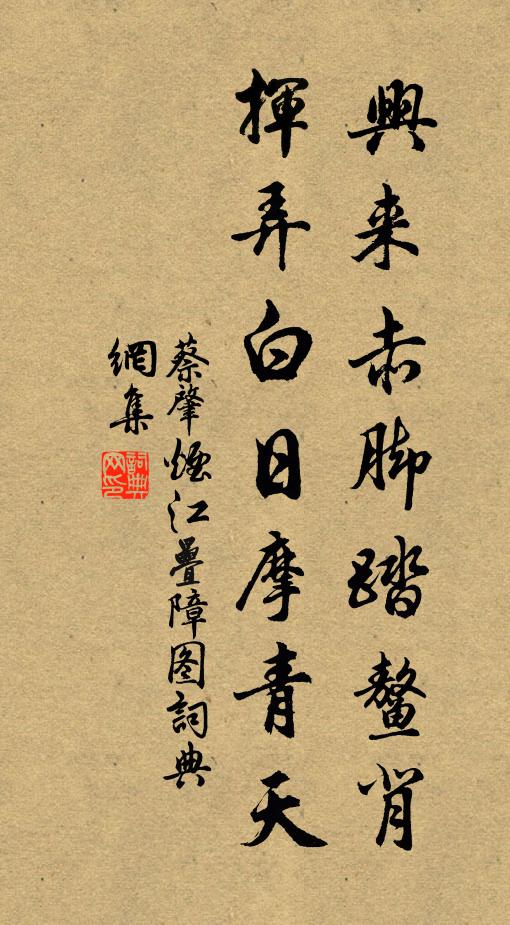 興来赤脚踏鰲背
揮弄白日摩青天
蔡肇煙江疊障图詞典
網集
詞典
网印